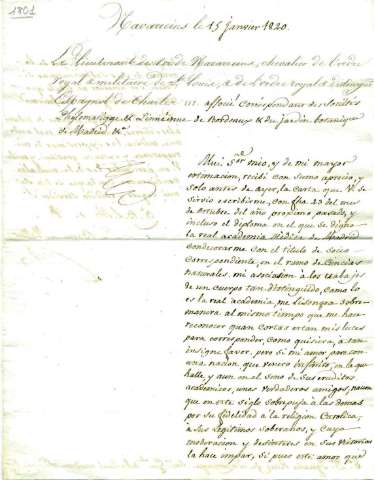 1801
Navarreins le 15 Janvier 1820.
Le Lieutenant de Roi de Navarreins, chevalier de l'ordre
royal & militaire de St. Louis, & de l'ordre royal & distingué
Espagnol de Charles III. associé Correspondant des Sociétés
Philomatique & Linnéenne de Bordeaux & du jardin botanique
de Madrid &c.
Mui Sor. mio, y de mi mayor
estimacion, recibi con sumo aprecio, y
solo antes de ayer, la carta que V. se
sirvio escribirme, con fha 23 del mes
de octubre del año proximo pasado, y
incluso el diploma en el que se digno
la real academia Medica de Madrid
condecorarme con el titulo de socio
correspondiente, en el ramo de Ciencias
naturales. mi asociacion à los trabajos
de un cuerpo tan distinguido, como lo
es la real academia, me lisongea sobre-
manera al mismo tiempo que me hace
reconocer quan cortas estan mis luces
para corresponder, como quisiera, à tan
insigne favor, pero si mi amor para con
una nacion, que venero infinito, en la que
halle, y aun en el seno de sus eruditos
academicos, unos verdaderos amigos, nacion
que en este siglo sobrepuja à las demas
por su fidelidad à la religion Catolica,
a sus legitimos soberanos, y cuya
moderacion y desinteres en sus victorias
la hace impar, si pues este amor que